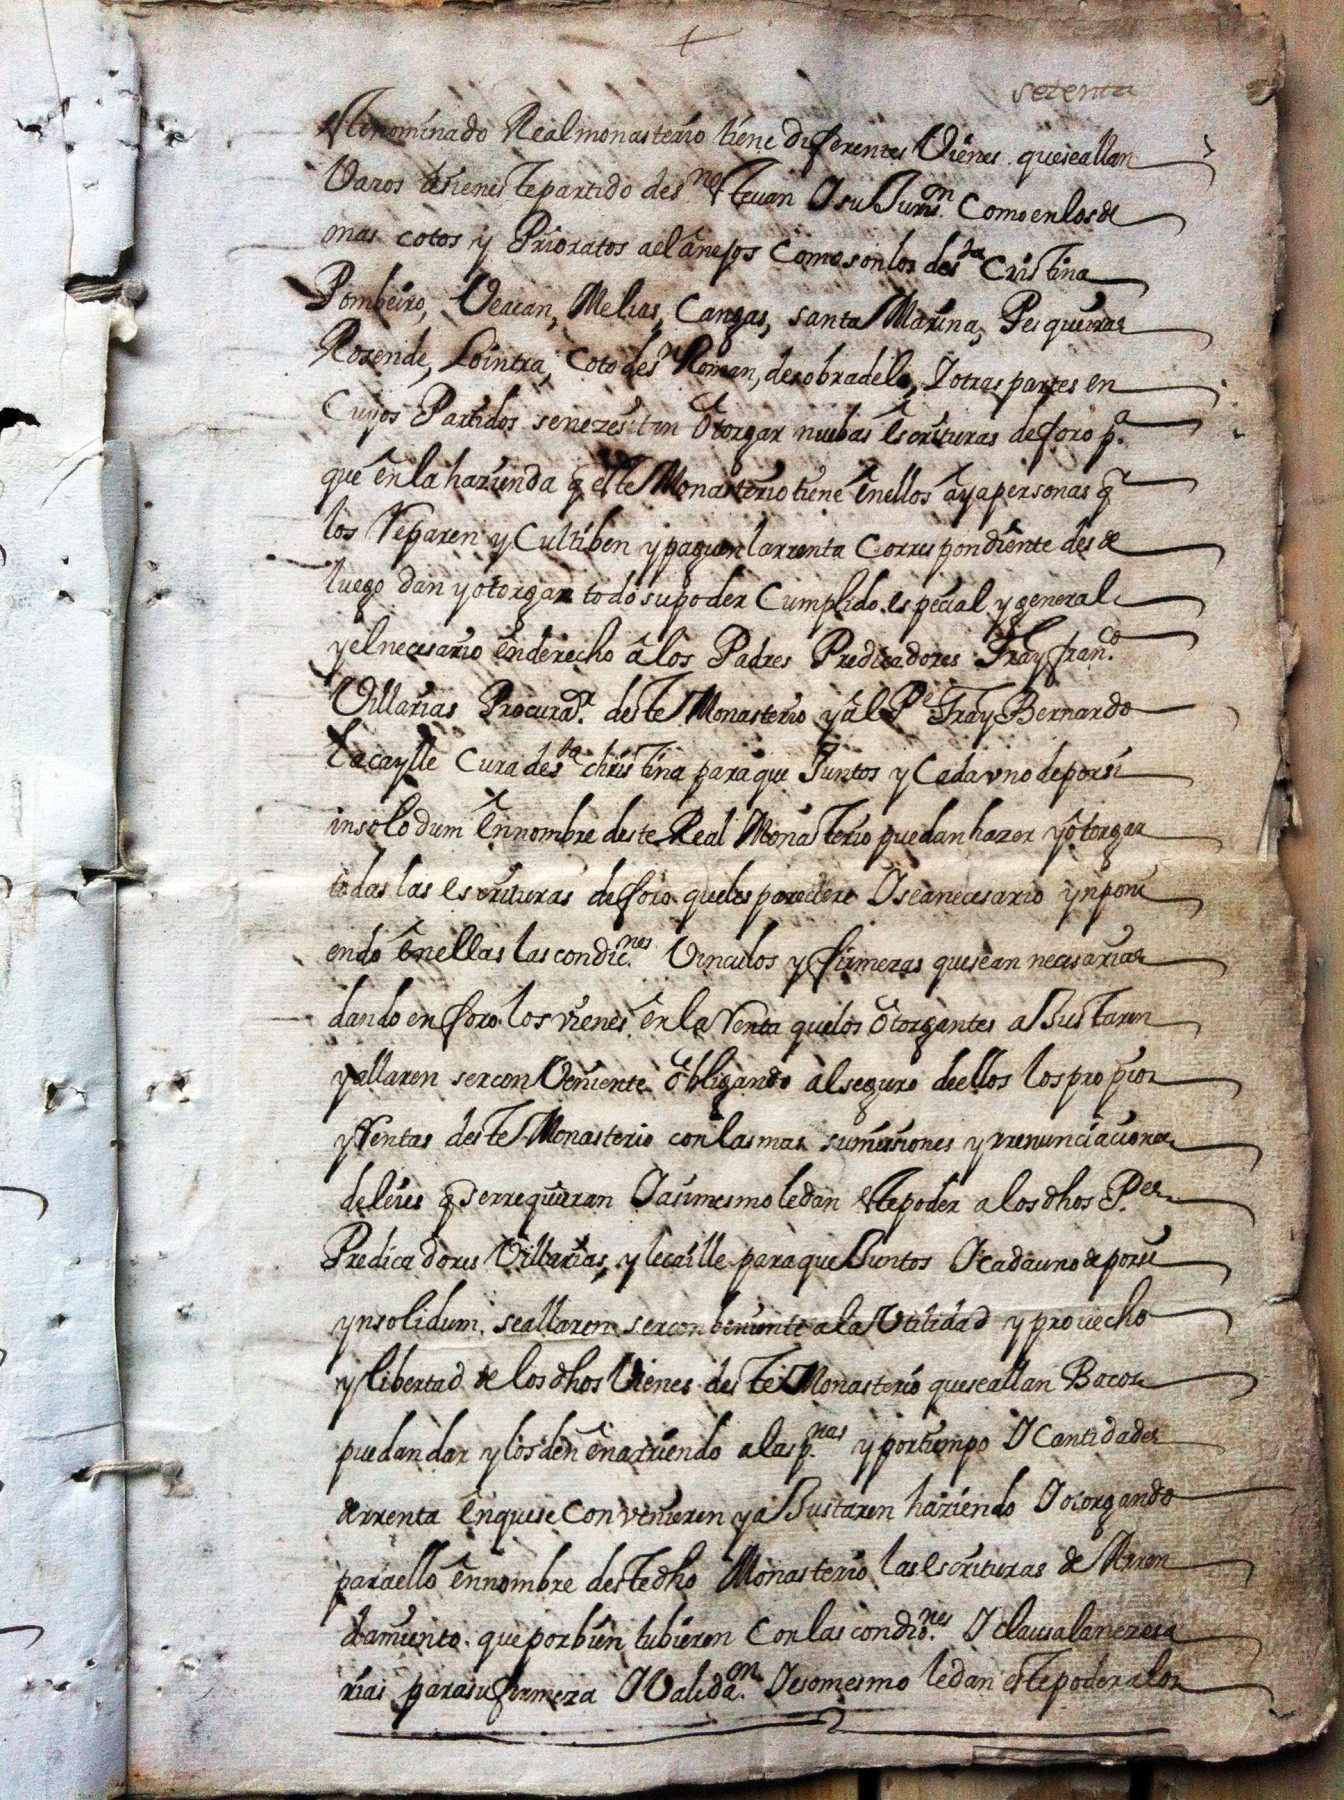 setenta
Nominado Real monasterio tiene diferentes Vienes que seallan
Vacos asi en este partido de s.n estevan Y su Juris.on Como en los de
mas cotos y Prioratos a el anejos Como son los de s.ta Cristina
Pombeiro, Veacan, Melias, Cangas, santa Marina, Pesqueiras
Rosende, Lointra, Coto de s.n Roman, de sobradelo, Y otras partes en
Cuyos Partidos se nezesitan otorgar nuebas escrituras de foro p.a
que en la hazienda q este Monasterio tiene en ellos aya personas q
los Reparen y Cultiben y paguen la rrenta Correspondiente desde
luego dan y otorgan todo su poder Cumplido especial y general
y el necesario en derecho a los Padres Predicadores Fray fran.co
Villarias Procura.r deste Monasterio y al P.e Fray Bernardo
Lacaylle Cura de s.ta christina para que Juntos y Cada vno de por si
insolodum en nombre deste Real Monasterio puedan hazer y otorgar
todas las escrituras de foro que les pareciere Y sea necesario ynponi
endo en ellas las condic.nes Vinculos y firmezas que sean necesarias
dando en foro los vienes en la Renta que los otorgantes a Justaren
y allaren ser con Veniente obligando al seguro de ellos los propios
y Rentas deste Monasterio con las mas sumisiones y rrenunciaciones
de leies q se rrequieran Y asimesmo le dan este poder a los dhos P.es
Predicadores Villarias, y lecaille para que Juntos Y cada uno de por si
ynsolidum, se allaren ser conbeniente a la Vtilidad y provecho
y libertad de los dhos Vienes deste Monasterio que se allan Bacos
puedan dar y los den en arriendo a las p.nas y por tiempo Y Cantidades
de rrenta en que se Convenieren y a Justaren haziendo Y otorgando
para ello en nombre deste dho Monasterio las escrituras de Arren
damiento que por bien tubieren Con las condio.nes Y clausalas nezesa
rias para su firmeza Y Valida.on Y eso mesmo le dan este poder a los